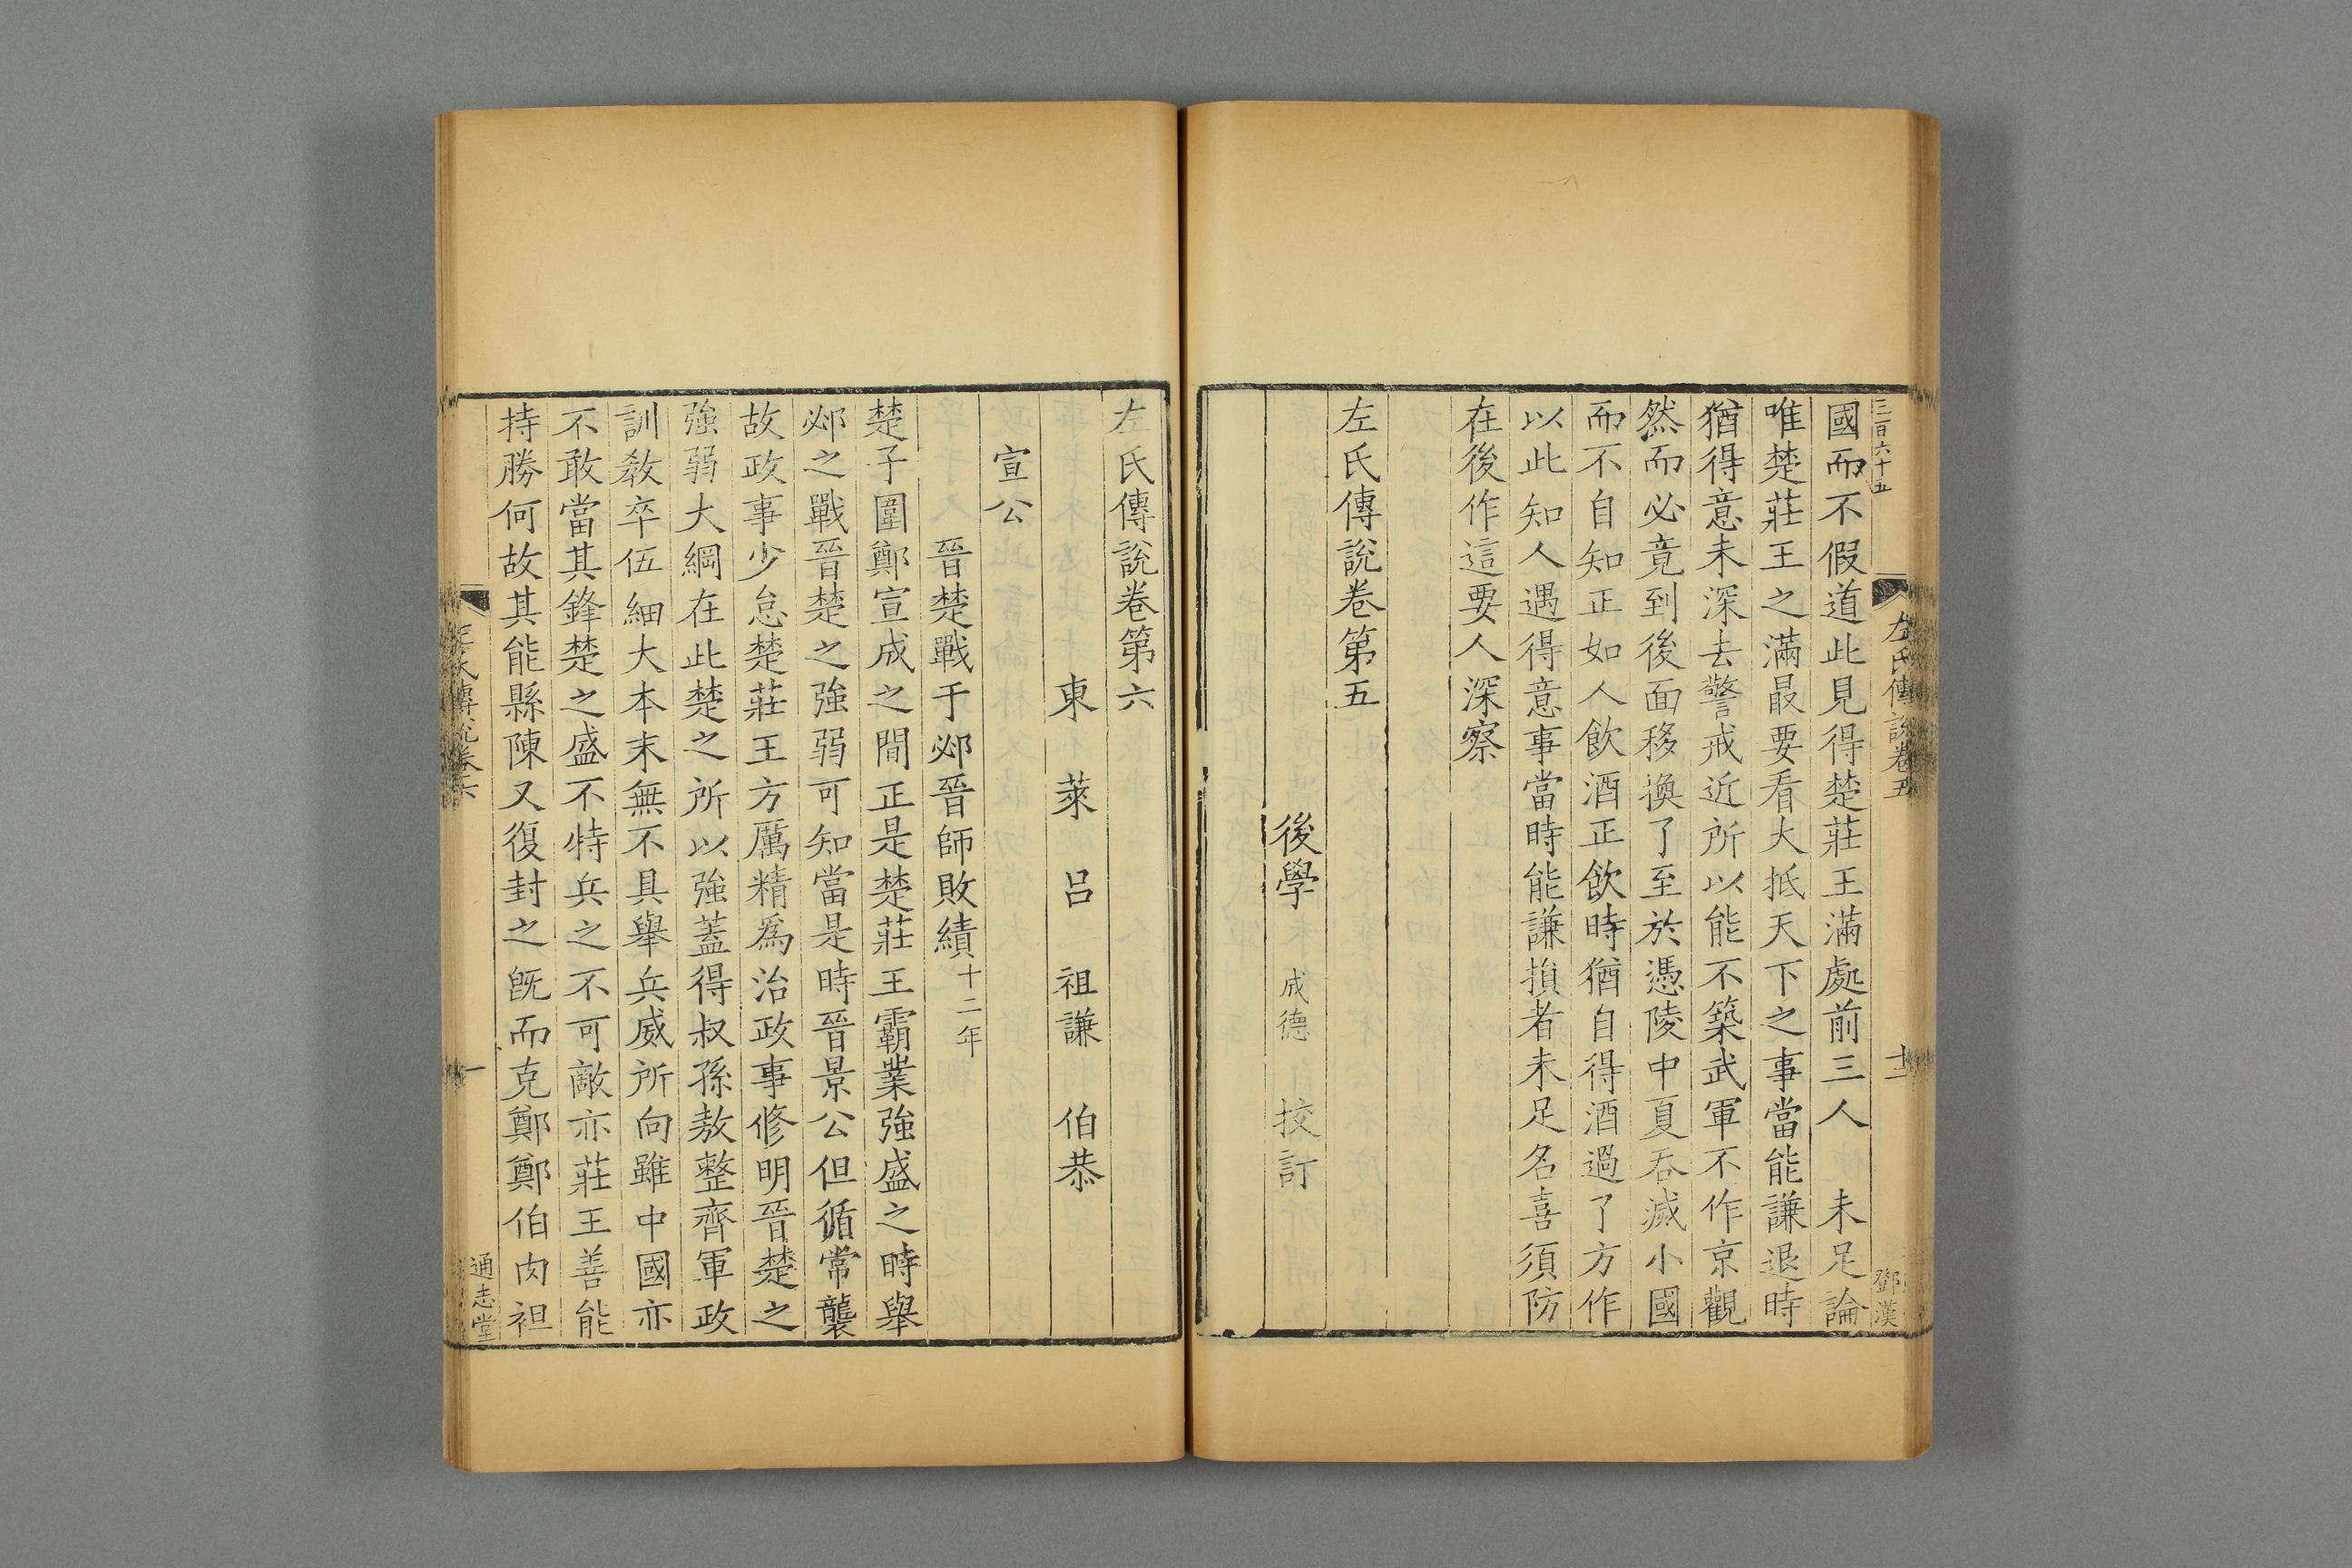 三百六十五
左氏傳說卷五
十二
鄧漢
國而不假道此見得楚莊王滿處前三人未足論
唯楚莊王之滿最要看大抵天下之事當能謙退時
猶得意未深去警戒近所以能不築武軍不作京觀
然而必竟到後面移換了至於憑陵中夏吞滅小國
而不自知正如人飲酒正飲時猶自得酒過了方作
以此知人遇得意事當時能謙損者未足名喜須防
在後作這要人深察
左氏傳說卷第五
後學成德挍訂
左氏傳說卷第六
東萊呂祖謙伯恭
宣公
晉楚戰于邲晉師敗績十二年
楚子圍鄭宣成之間正是楚莊王霸業強盛之時舉
邲之戰晉楚之強弱可知當是時晉景公但循常襲
故政事少怠楚莊王方厲精爲治政事修明晉楚之
強弱大綱在此楚之所以強蓋得叔孫敖整齊軍政
訓教卒伍細大本末無不具舉兵威所向雖中國亦
不敢當其鋒楚之盛不特兵之不可敵亦莊王善能
持勝何故其能縣陳又復封之旣而克鄭鄭伯肉袒
左氏傳說卷六
一
通志堂